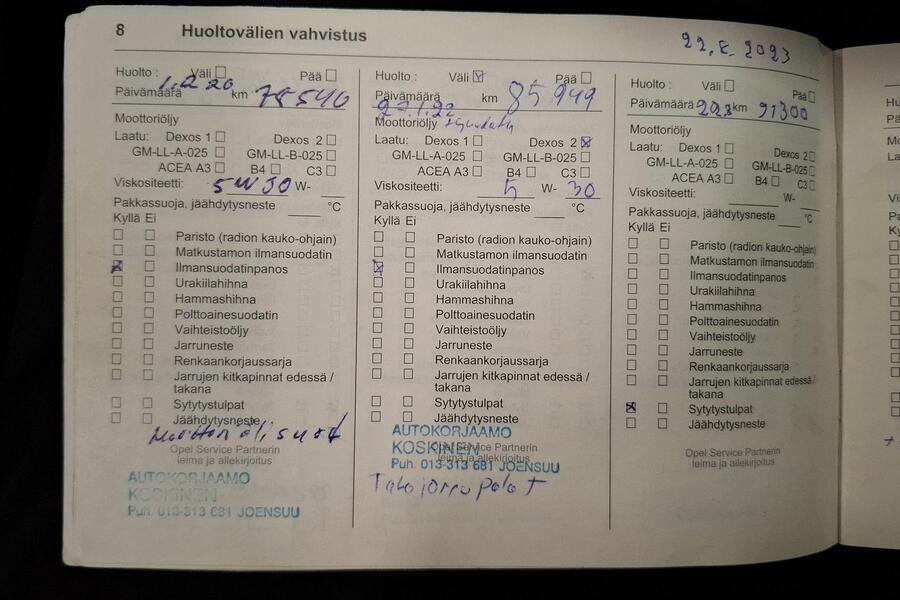 8 Huoltovälien vahvistus
22.8. 2023
Huolto : Väli Pää
Päivämäärä km 78540
Moottoriöljy
Laatu: Dexos 1 Dexos 2
GM-LL-A-025 GM-LL-B-025
ACEA A3 B4 C3
Viskositeetti: 5W30 W-
Pakkassuoja, jäähdytysneste °C
Kyllä Ei
Paristo (radion kauko-ohjain)
Matkustamon ilmansuodatin
Ilmansuodatinpanos
Urakiilahihna
Hammashihna
Polttoainesuodatin
Vaihteistoöljy
Jarruneste
Renkaankorjaussarja
Jarrujen kitkapinnat edessä /
takana
Sytytystulpat
Jäähdytysneste
Opel Service Partnerin
leima ja allekirjoitus
AUTOKORJAAMO
KOSKINEN
Puh. 013-313 681 JOENSUU
Huolto : Väli Pää
Päivämäärä km 85 949
27.1.22
Moottoriöljy
Laatu: Dexos 1 Dexos 2
GM-LL-A-025 GM-LL-B-025
ACEA A3 B4 C3
Viskositeetti: 5 W- 30
Pakkassuoja, jäähdytysneste °C
Kyllä Ei
Paristo (radion kauko-ohjain)
Matkustamon ilmansuodatin
Ilmansuodatinpanos
Urakiilahihna
Hammashihna
Polttoainesuodatin
Vaihteistoöljy
Jarruneste
Renkaankorjaussarja
Jarrujen kitkapinnat edessä /
takana
Sytytystulpat
Jäähdytysneste
AUTOKORJAAMO
KOSKINEN
Opel Service Partnerin
leima ja allekirjoitus
Puh. 013-313 681 JOENSUU
Takajarrupalat
Huolto : Väli Pää
Päivämäärä 22.8 km 91300
Moottoriöljy
Laatu: Dexos 1 Dexos 2
GM-LL-A-025 GM-LL-B-025
ACEA A3 B4 C3
Viskositeetti: W-
Pakkassuoja, jäähdytysneste °C
Kyllä Ei
Paristo (radion kauko-ohjain)
Matkustamon ilmansuodatin
Ilmansuodatinpanos
Urakiilahihna
Hammashihna
Polttoainesuodatin
Vaihteistoöljy
Jarruneste
Renkaankorjaussarja
Jarrujen kitkapinnat edessä /
takana
Sytytystulpat
Jäähdytysneste
Opel Service Partnerin
leima ja allekirjoitus